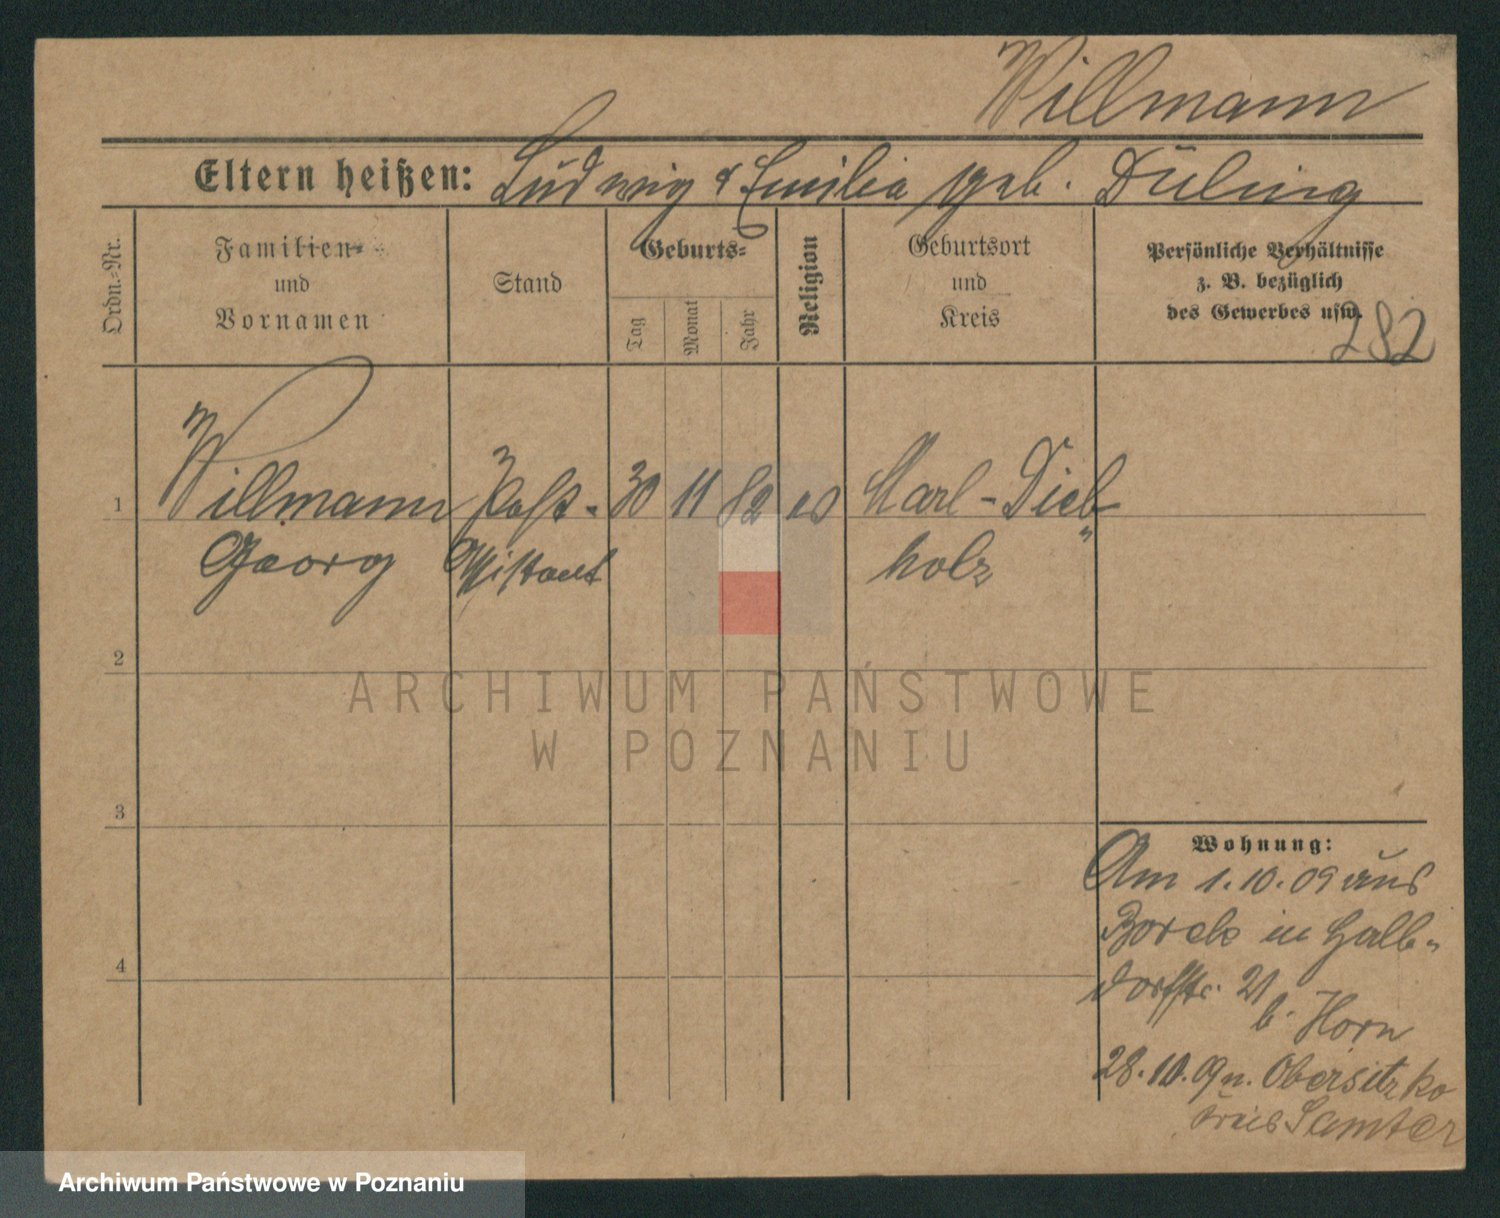 Willmann
Eltern heißen: Ludwig & Emilia geb. Düling
Ordn.-Nr.
Familien-
und
Vornamen
Stand
Geburts-
Tag
Monat
Jahr
Religion
Geburtsort
und
Kreis
Persönliche Verhältnisse
z. B. bezüglich
des Gewerbes usw.
282
1
Willmann
Georg
Post-
Assistent
30
11
82
ev
Marl-Dieb-
holz
2
3
4
Wohnung:
Am 1.10.09 aus
Borek in Halb-
dorfstr. 21
b. Horn
28.10.09 n. Obersitzko
Kreis Samter
ARCHIWUM PAŃSTWOWE
W POZNANIU
Archiwum Państwowe w Poznaniu